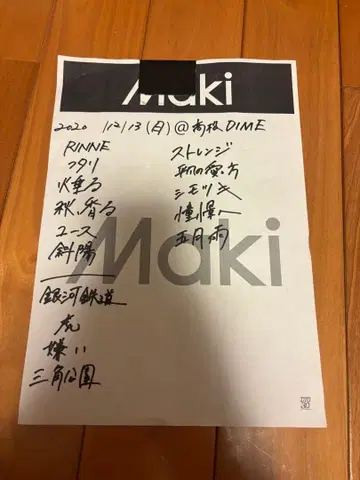 Maki
2020 12/13(日) @高松DIME
RINNE
フタリ
火種る
秋、香る
ユース
斜陽
銀河鉄道
虎
嫌い
三角公園
ストレンジ
平日の愛し方
シモツキ
憧憬へ
五月雨
Maki